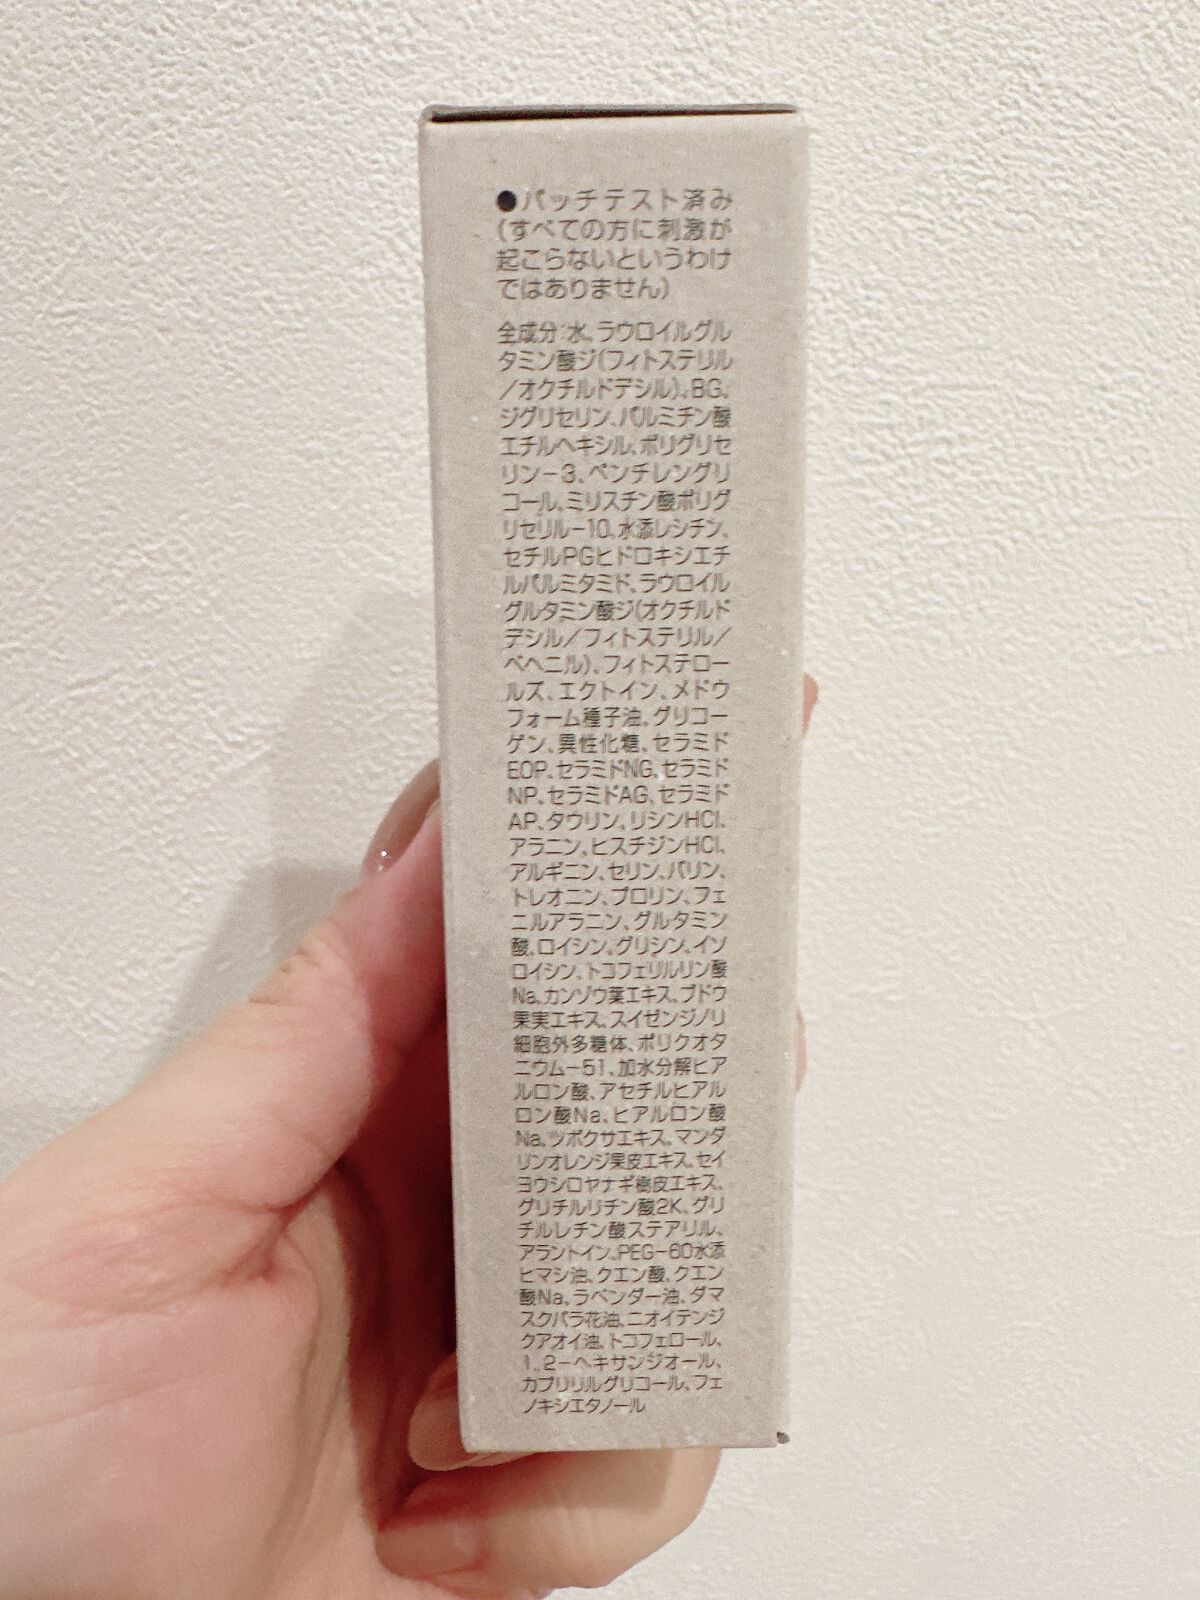 ●パッチテスト済み
(すべての方に刺激が
起こらないというわけ
ではありません)
全成分:水、ラウロイルグル
タミン酸ジ(フィトステリル
/オクチルドデシル)、BG、
ジグリセリン、パルミチン酸
エチルヘキシル、ポリグリセ
リン-3、ペンチレングリ
コール、ミリスチン酸ポリグ
リセリル-10、水添レシチン、
セチルPGヒドロキシエチ
ルパルミタミド、ラウロイル
グルタミン酸ジ(オクチルド
デシル/フィトステリル/
ベヘニル)、フィトステロー
ルズ、エクトイン、メドウ
フォーム種子油、グリコー
ゲン、異性化糖、セラミド
EOP、セラミドNG、セラミド
NP、セラミドAG、セラミド
AP、タウリン、リシンHCl、
アラニン、ヒスチジンHCl、
アルギニン、セリン、バリン、
トレオニン、プロリン、フェ
ニルアラニン、グルタミン
酸、ロイシン、グリシン、イソ
ロイシン、トコフェリルリン酸
Na、カンゾウ葉エキス、ブドウ
果実エキス、スイゼンジノリ
細胞外多糖体、ポリクオタ
ニウム-51、加水分解ヒア
ルロン酸、アセチルヒアル
ロン酸Na、ヒアルロン酸
Na、ツボクサエキス、マンダ
リンオレンジ果皮エキス、セイ
ヨウシロヤナギ樹皮エキス、
グリチルリチン酸2K、グリ
チルレチン酸ステアリル、
アラントイン、PEG-60水添
ヒマシ油、クエン酸、クエン
酸Na、ラベンダー油、ダマ
スクバラ花油、ニオイテンジ
クアオイ油、トコフェロール、
1,2-ヘキサンジオール、
カプリリルグリコール、フェ
ノキシエタノール